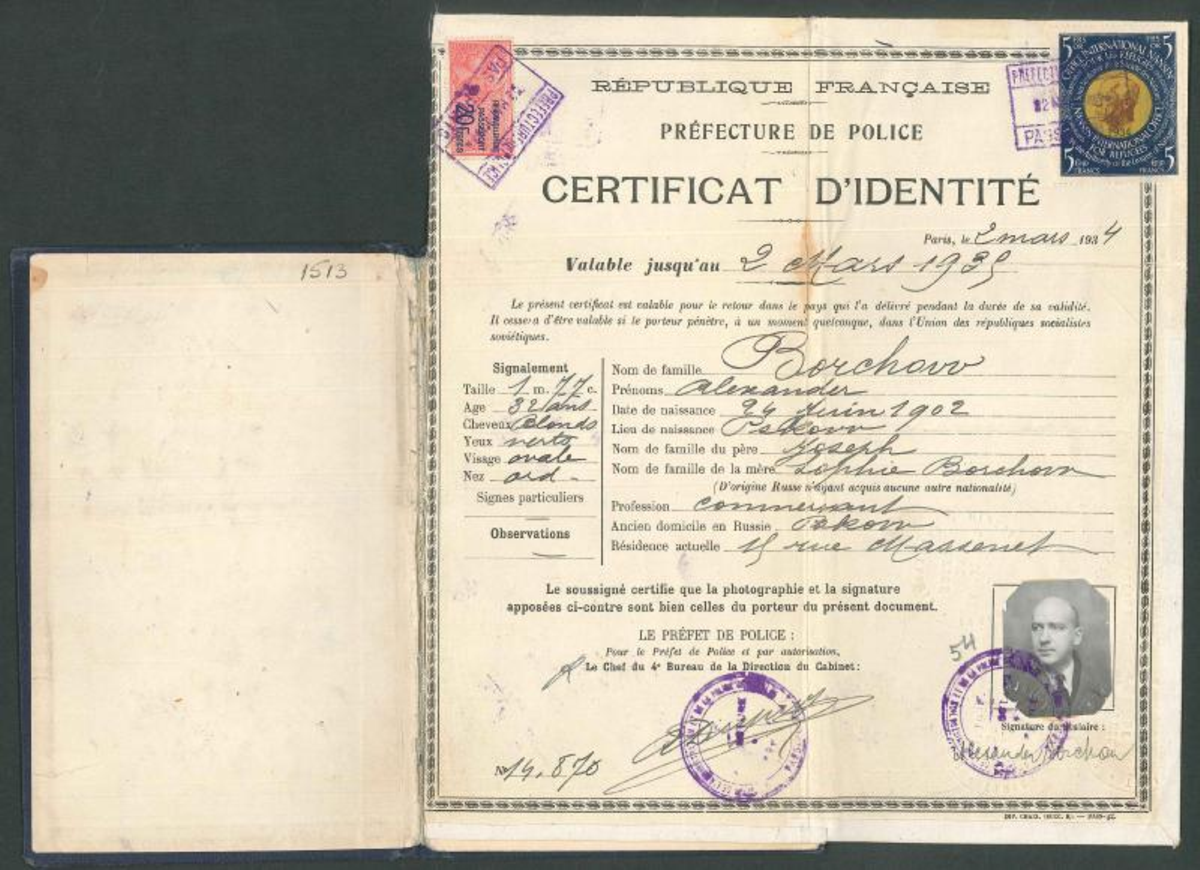 1513
RÉPUBLIQUE FRANÇAISE
PRÉFECTURE DE POLICE
CERTIFICAT D'IDENTITÉ
Paris, le 2 mars 1934
Valable jusqu'au 2 Mars 1935
Le présent certificat est valable pour le retour dans le pays qui l'a délivré pendant la durée de sa validité.
Il cessera d'être valable si le porteur pénètre, à un moment quelconque, dans l'Union des républiques socialistes
soviétiques.
Signalement
Taille 1 m. 77 c.
Age 32 ans
Cheveux Blonds
Yeux verts
Visage ovale
Nez ord
Signes particuliers
Observations
Nom de famille Borchovv
Prénoms Alexander
Date de naissance 24 Juin 1902
Lieu de naissance Pskovv
Nom de famille du père Joseph
Nom de famille de la mère Sophie Borchovv
(D'origine Russe n'ayant acquis aucune autre nationalité)
Profession commerçant
Ancien domicile en Russie Pskovv
Résidence actuelle 15 rue Massenet
Le soussigné certifie que la photographie et la signature
apposées ci-contre sont bien celles du porteur du présent document.
LE PRÉFET DE POLICE :
Pour le Préfet de Police et par autorisation,
Le Chef du 4e Bureau de la Direction du Cabinet :
54
Signature du titulaire :
Alexander Borchow
No 14.870
PRÉFECTURE
5 5
FOR REFUGEES
5 5
FRANCS FRANCS
20F